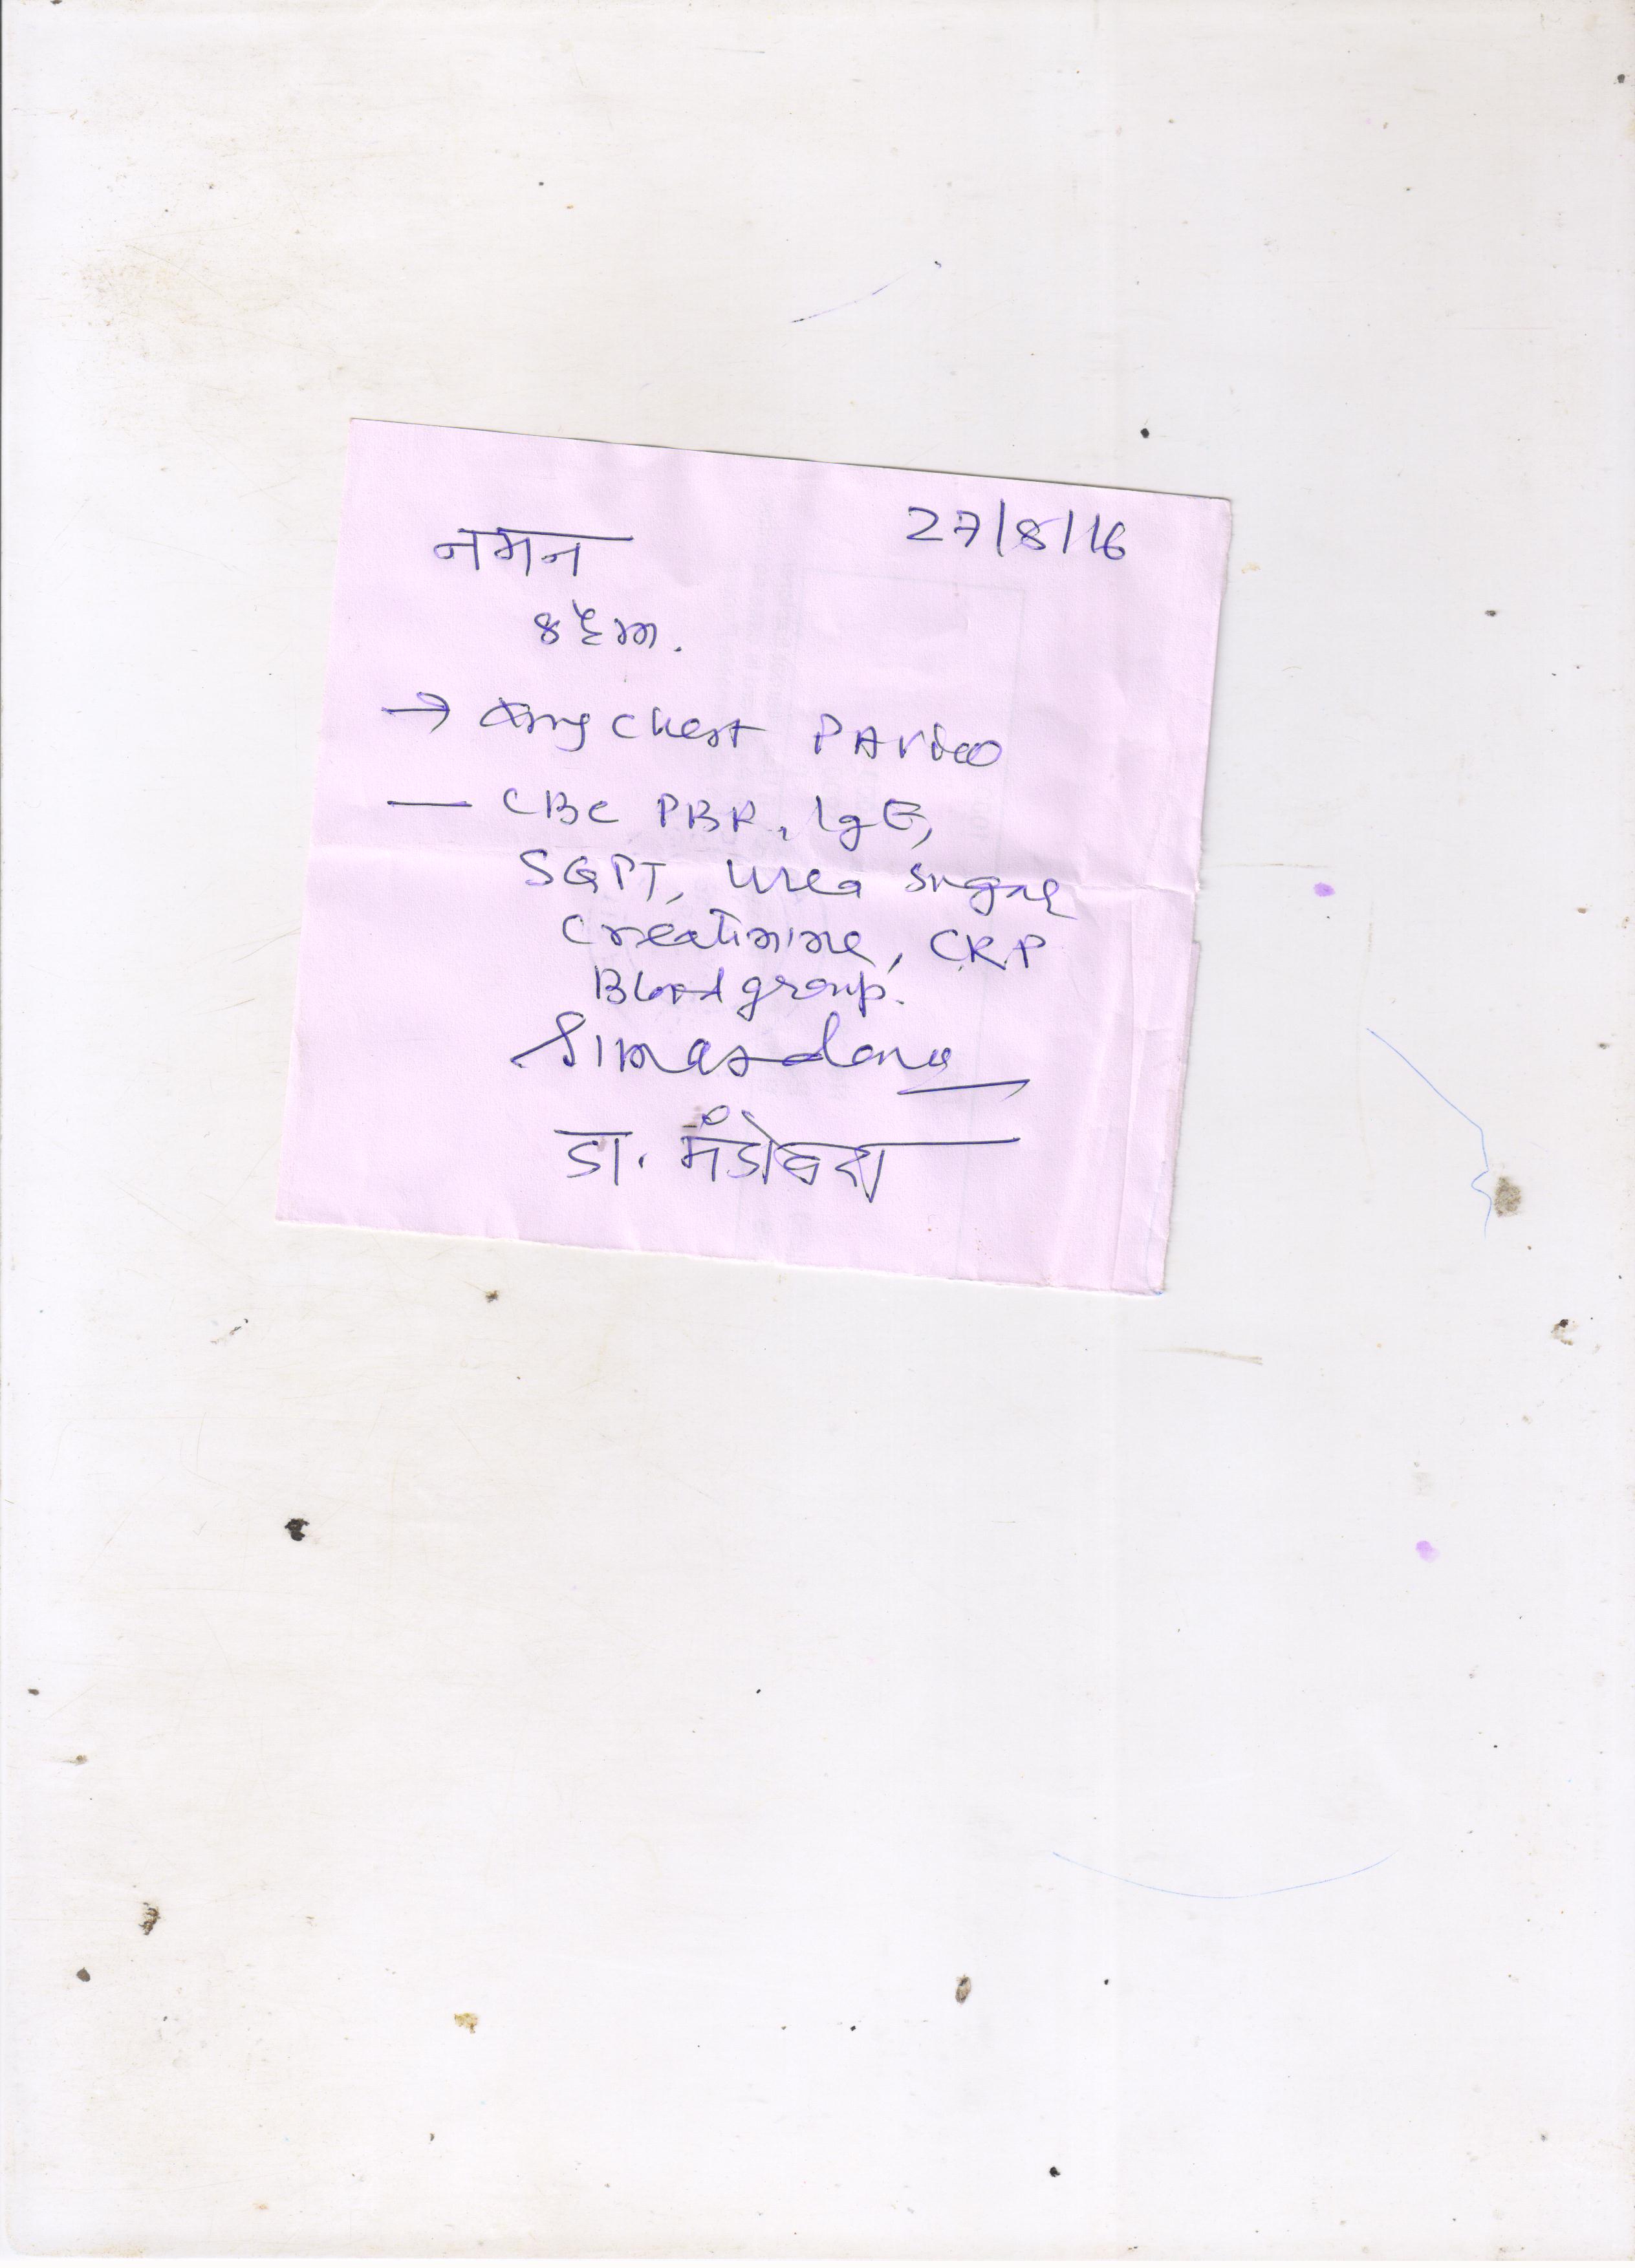 नमन 27/8/16
→ Xray Chest PA view
— CBC PBR, IgE,
SGPT, Urea Sugar
Creatinine, CRP
Blood group.
डा. मंडोवरा